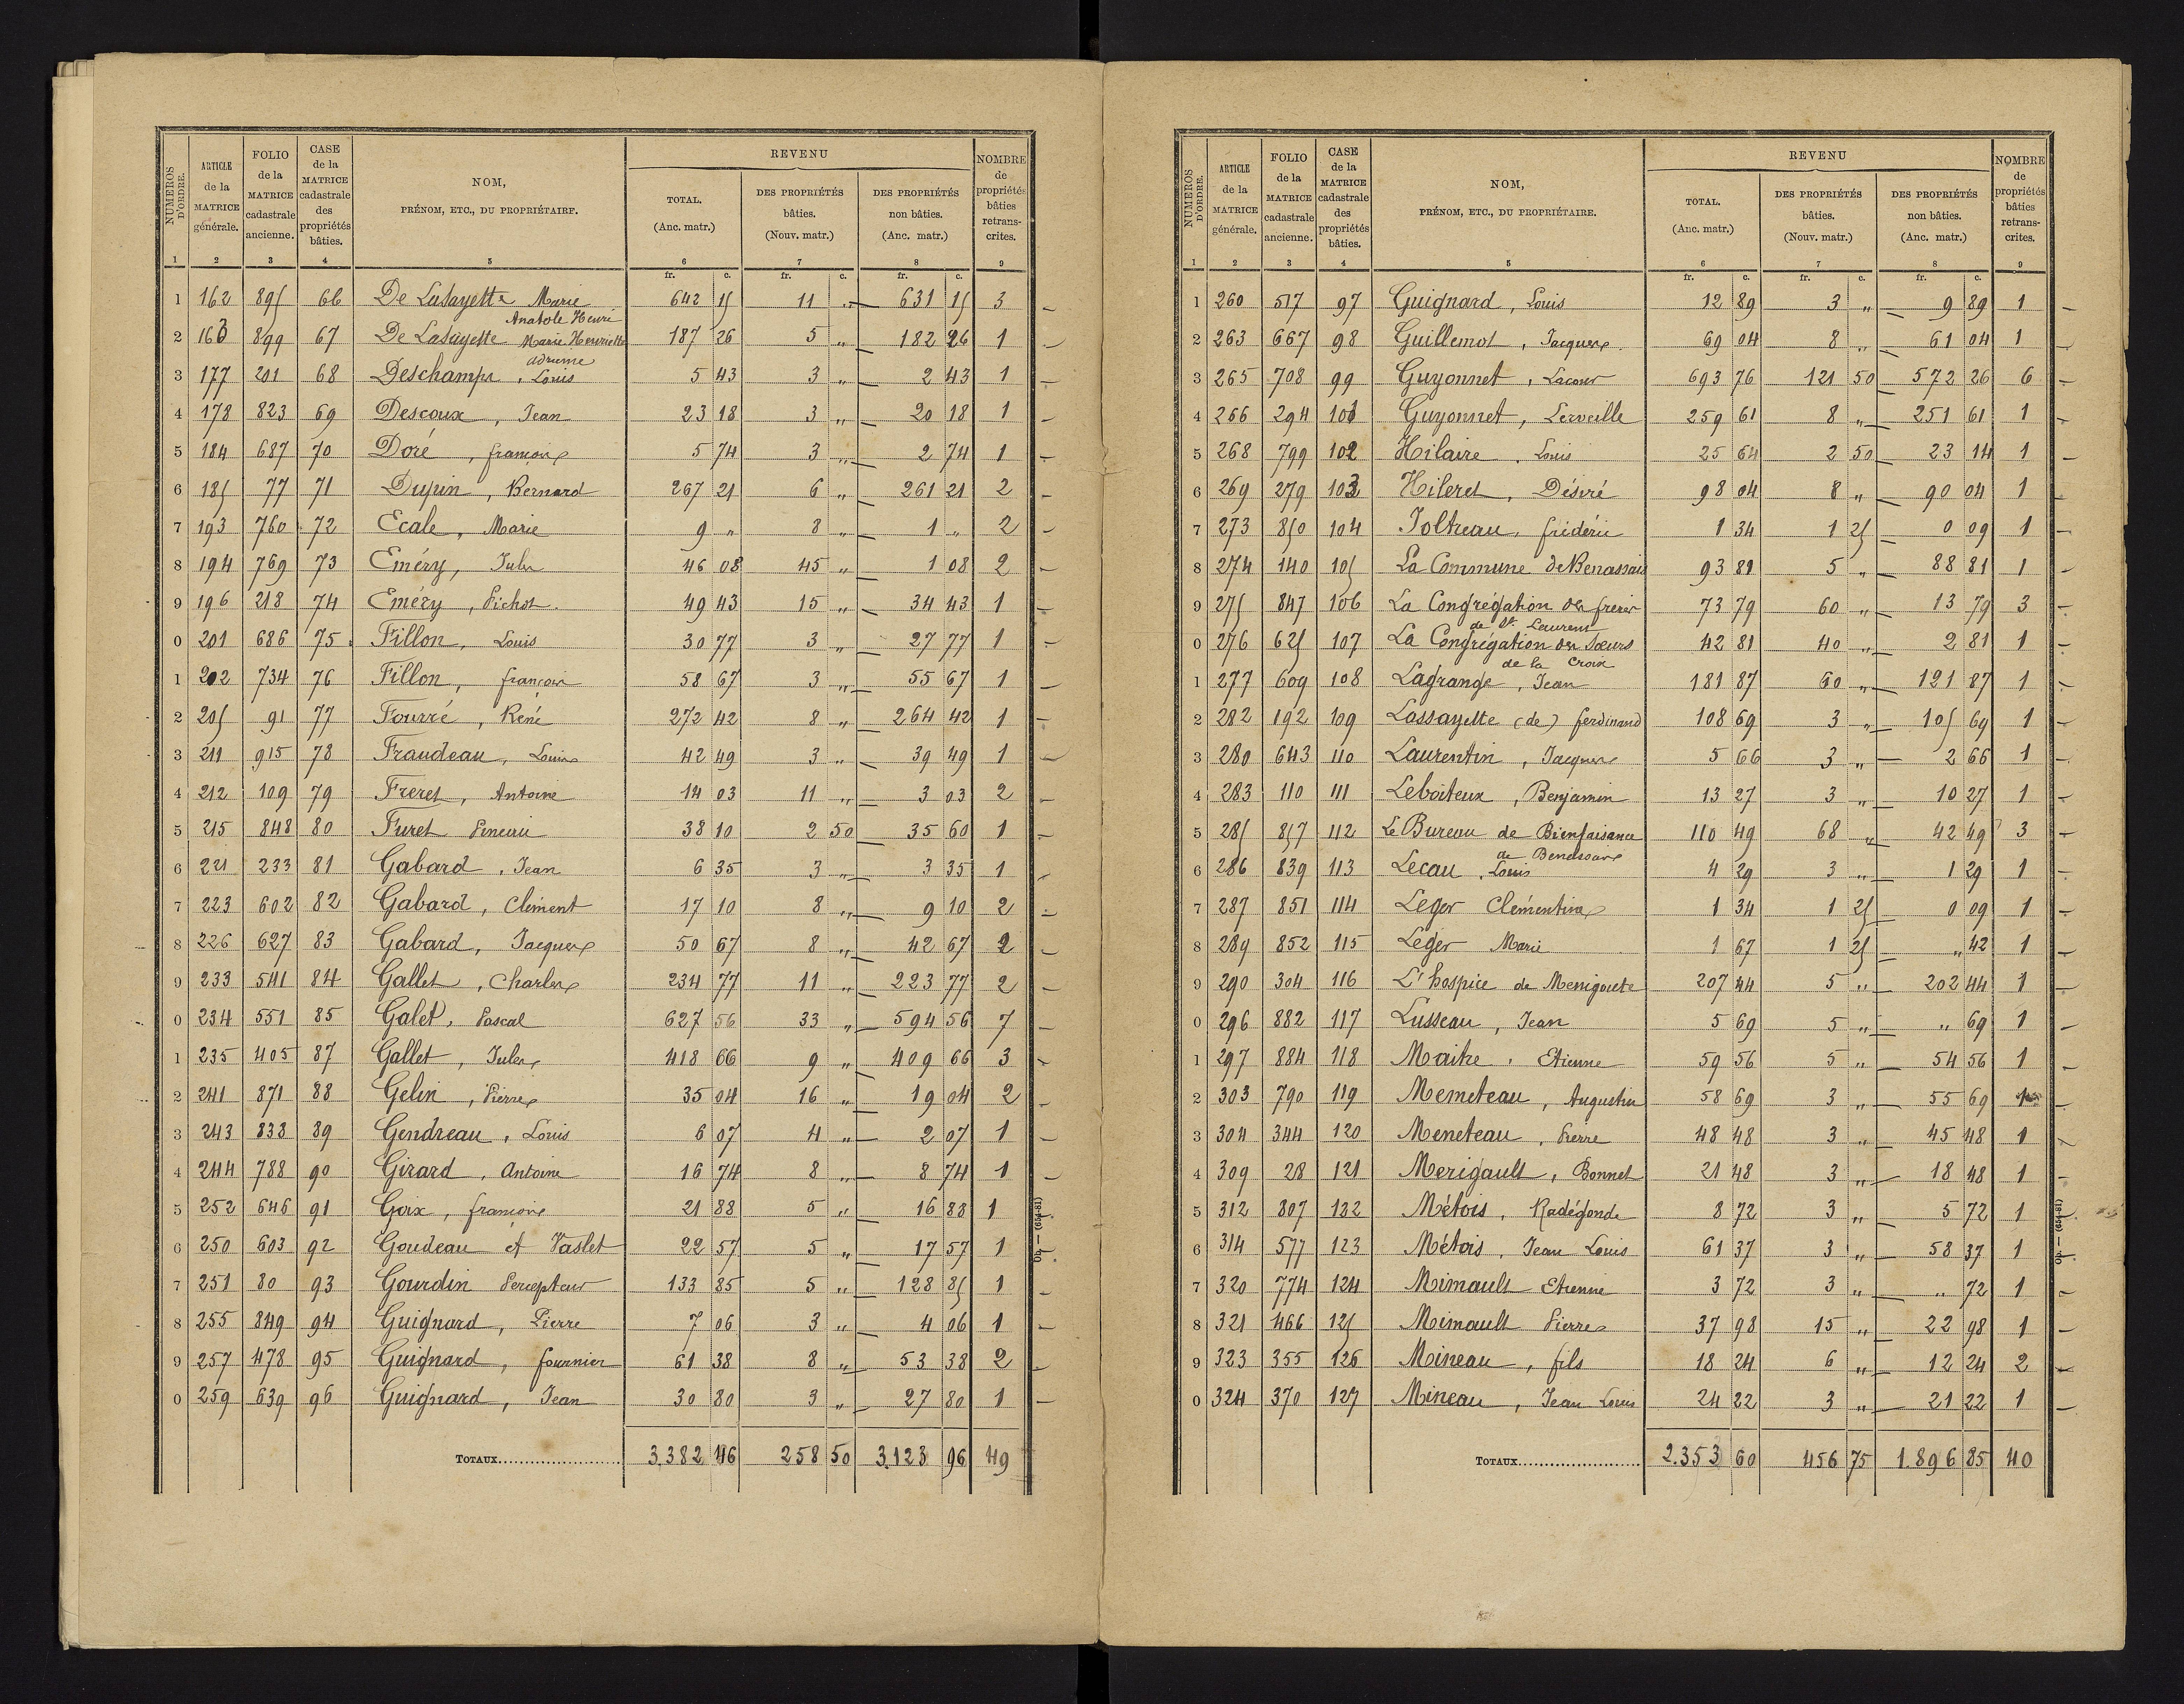 NUMÉROS D'ORDRE. ARTICLE de la MATRICE générale. FOLIO de la MATRICE cadastrale ancienne. CASE de la MATRICE cadastrale des propriétés bâties. NOM, PRÉNOM, ETC., DU PROPRIÉTAIRE. REVENU TOTAL. (Anc. matr.) DES PROPRIÉTÉS bâties. (Nouv. matr.) DES PROPRIÉTÉS non bâties. (Anc. matr.) NOMBRE de propriétés bâties retranscrites.
1 2 3 4 5 6 7 8 9
fr. c. fr. c. fr. c.
1 162 895 66 De Lasayette Marie 642 15 11 " 631 15 3
Anatole Henri
2 163 899 67 De Lasayette Marie Henriette 187 26 5 " 182 26 1
3 177 201 68 Deschamps, Louis 5 43 3 " 2 43 1
4 178 823 69 Descoux, Jean 23 18 3 " 20 18 1
5 184 687 70 Doré, françois 5 74 3 " 2 74 1
6 185 77 71 Dupin, Bernard 267 21 6 " 261 21 2
7 193 760 72 Ecale, Marie 9 " 8 " 1 " 2
8 194 769 73 Eméry, Jules 46 08 45 " 1 08 2
9 196 218 74 Eméry, Pichot 49 43 15 " 34 43 1
0 201 686 75 Fillon, Louis 30 77 3 " 27 77 1
1 202 734 76 Fillon, françois 58 67 3 " 55 67 1
2 205 91 77 Fourré, René 272 42 8 " 264 42 1
3 211 915 78 Fraudeau, Louis 42 49 3 " 39 49 1
4 212 109 79 Freret, Antoine 14 03 11 " 3 03 2
5 215 848 80 Furet 38 10 2 50 35 60 1
6 221 233 81 Gabard, Jean 6 35 3 " 3 35 1
7 223 602 82 Gabard, Clément 17 10 8 " 9 10 2
8 226 627 83 Gabard, Jacques 50 67 8 " 42 67 2
9 233 541 84 Gallet, Charles 234 77 11 " 223 77 2
0 234 551 85 Galet, Pascal 627 56 33 " 594 56 7
1 235 405 87 Gallet, Jules 418 66 9 " 409 66 3
2 241 871 88 Gelin, Pierre 35 04 16 " 19 04 2
3 243 838 89 Gendreau, Louis 6 07 4 " 2 07 1
4 244 788 90 Girard, Antoine 16 74 8 " 8 74 1
5 252 646 91 Goix, françois 21 88 5 " 16 88 1
6 250 603 92 Goudeau et Vaslet 22 57 5 " 17 57 1
7 251 80 93 Gourdin Percepteur 133 85 5 " 128 85 1
8 255 849 94 Guignard, Pierre 7 06 3 " 4 06 1
9 257 478 95 Guignard, fournier 61 38 8 " 53 38 2
0 259 639 96 Guignard, Jean 30 80 3 " 27 80 1
TOTAUX 3.382 46 258 50 3.123 96 49
NUMÉROS D'ORDRE. ARTICLE de la MATRICE générale. FOLIO de la MATRICE cadastrale ancienne. CASE de la MATRICE cadastrale des propriétés bâties. NOM, PRÉNOM, ETC., DU PROPRIÉTAIRE. REVENU TOTAL. (Anc. matr.) DES PROPRIÉTÉS bâties. (Nouv. matr.) DES PROPRIÉTÉS non bâties. (Anc. matr.) NOMBRE de propriétés bâties retranscrites.
1 2 3 4 5 6 7 8 9
fr. c. fr. c. fr. c.
1 260 517 97 Guignard, Louis 12 89 3 " 9 89 1
2 263 667 98 Guillemot, Jacques 69 04 8 " 61 04 1
3 265 708 99 Guyonnet, Lacour 693 76 121 50 572 26 6
4 266 294 101 Guyonnet, Lerveille 259 61 8 " 251 61 1
5 268 799 102 Hilaire, Louis 25 64 2 50 23 14 1
6 269 279 103 Hileret, Désiré 98 04 8 " 90 04 1
7 273 850 104 Joltreau, fridéric 1 34 1 25 0 09 1
8 274 140 105 La Commune de Benassais 93 81 5 " 88 81 1
9 275 847 106 La Congrégation des frères 73 79 60 " 13 79 3
de St. Laurent
0 276 625 107 La Congrégation des Sœurs 42 81 40 " 2 81 1
de la Croix
1 277 609 108 Lagrange, Jean 181 87 60 " 121 87 1
2 282 192 109 Lassayette (de) ferdinand 108 69 3 " 105 69 1
3 280 643 110 Laurentin, Jacques 5 66 3 " 2 66 1
4 283 110 111 Leboiteux, Benjamin 13 27 3 " 10 27 1
5 285 857 112 Le Bureau de Bienfaisance 110 49 68 " 42 49 3
de Benassais
6 286 839 113 Lecau, Louis 4 29 3 " 1 29 1
7 287 851 114 Leger Clémentine 1 34 1 25 0 09 1
8 289 852 115 Leger Marie 1 67 1 25 " 42 1
9 290 304 116 L'hospice de Menigoute 207 44 5 " 202 44 1
0 296 882 117 Lusseau, Jean 5 69 5 " " 69 1
1 297 884 118 Maitre, Etienne 59 56 5 " 54 56 1
2 303 790 119 Memeteau, Augustin 58 69 3 " 55 69 1
3 304 344 120 Meneteau, Pierre 48 48 3 " 45 48 1
4 309 28 121 Merigault, Bonnet 21 48 3 " 18 48 1
5 312 807 122 Métois, Radégonde 8 72 3 " 5 72 1
6 314 577 123 Métois, Jean Louis 61 37 3 " 58 37 1
7 320 774 124 Mimault Etienne 3 72 3 " " 72 1
8 321 466 125 Mimault Pierre 37 98 15 " 22 98 1
9 323 355 126 Moineau, fils 18 24 6 " 12 24 2
0 324 370 127 Mineau, Jean Louis 24 22 3 " 21 22 1
TOTAUX 2.353 60 456 75 1.896 85 40